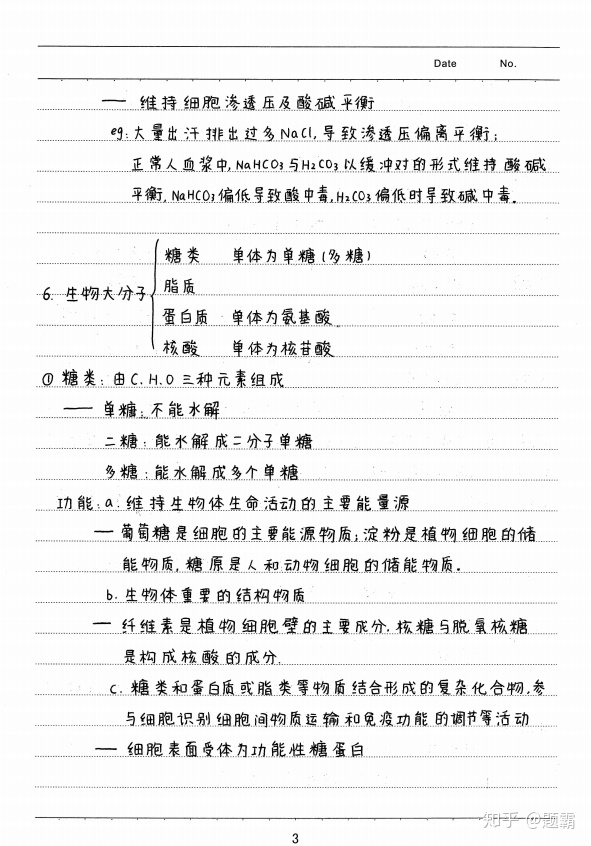 Date No.
— 维持细胞渗透压及酸碱平衡
eg:大量出汗排出过多NaCl,导致渗透压偏离平衡;
正常人血浆中,NaHCO₃与H₂CO₃以缓冲对的形式维持酸碱
平衡,NaHCO₃偏低导致酸中毒,H₂CO₃偏低时导致碱中毒。
糖类 单体为单糖(多糖)
脂质
6. 生物大分子
蛋白质 单体为氨基酸
核酸 单体为核苷酸
① 糖类:由C.H.O三种元素组成
— 单糖:不能水解
二糖:能水解成二分子单糖
多糖:能水解成多个单糖
功能:a.维持生物体生命活动的主要能量源
— 葡萄糖是细胞的主要能源物质;淀粉是植物细胞的储
能物质,糖原是人和动物细胞的储能物质。
b.生物体重要的结构物质
— 纤维素是植物细胞壁的主要成分.核糖与脱氧核糖
是构成核酸的成分.
c. 糖类和蛋白质或脂类等物质结合形成的复杂化合物,参
与细胞识别细胞间物质运输和免疫功能的调节等活动
— 细胞表面受体为功能性糖蛋白
知乎 @题霸
3